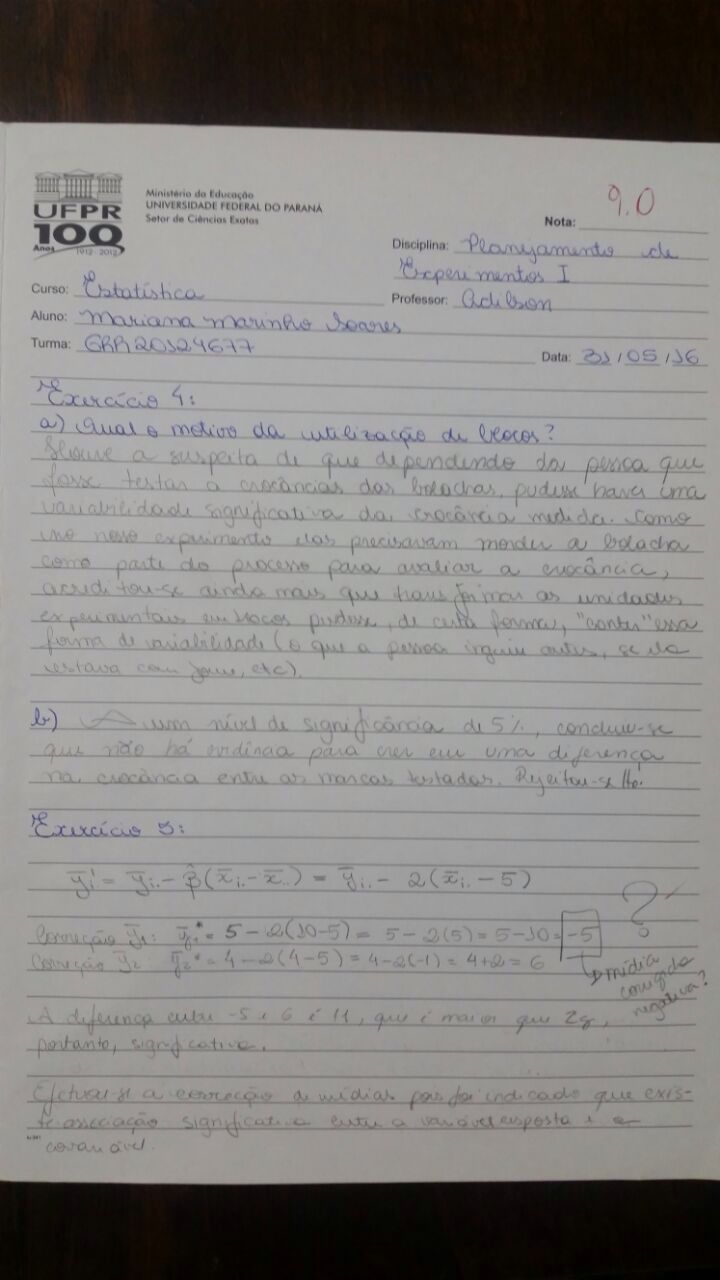 UFPR
100
Anos 1912-2012
Ministério da Educação
UNIVERSIDADE FEDERAL DO PARANÁ
Setor de Ciências Exatas
Nota: 9.0
Disciplina: Planejamento de
Experimentos I
Curso: Estatística
Professor: Adilson
Aluno: Mariana Marinho Soares
Turma: GRR20124677
Data: 31/05/16
Exercício 4:
a) Qual o motivo da utilização de blocos?
Houve a suspeita de que dependendo da pessoa que
fosse testar a crocâncias das bolachas, pudesse haver uma
variabilidade significativa da crocância medida. Como
no nosso experimento elas precisavam morder a bolacha
como parte do processo para avaliar a crocância,
acreditou-se ainda mais que transformar as unidades
experimentais em blocos pudesse, de certa forma, "conter" essa
forma de variabilidade (o que a pessoa ingeriu antes, se ela
estava com fome, etc).
b) A um nível de significância de 5%, concluiu-se
que não há evidência para crer em uma diferença
na crocância entre as marcas testadas. Rejeitou-se H₀.
Exercício 5:
ȳi.' = ȳi. - β̂(x̄i. - x̄..) = ȳi. - 2(x̄i. - 5)
Correção ȳ1: ȳ1* = 5 - 2(10-5) = 5 - 2(5) = 5-10 = -5
?
Correção ȳ2: ȳ2* = 4 - 2(4-5) = 4-2(-1) = 4+2 = 6
média
corrigida
negativa?
A diferença entre -5 e 6 é 11, que é maior que
portanto, significativa.
Efetuou-se a correção de médias pois foi indicado que exis-
te associação significativa entre a variável resposta e a
covariável.